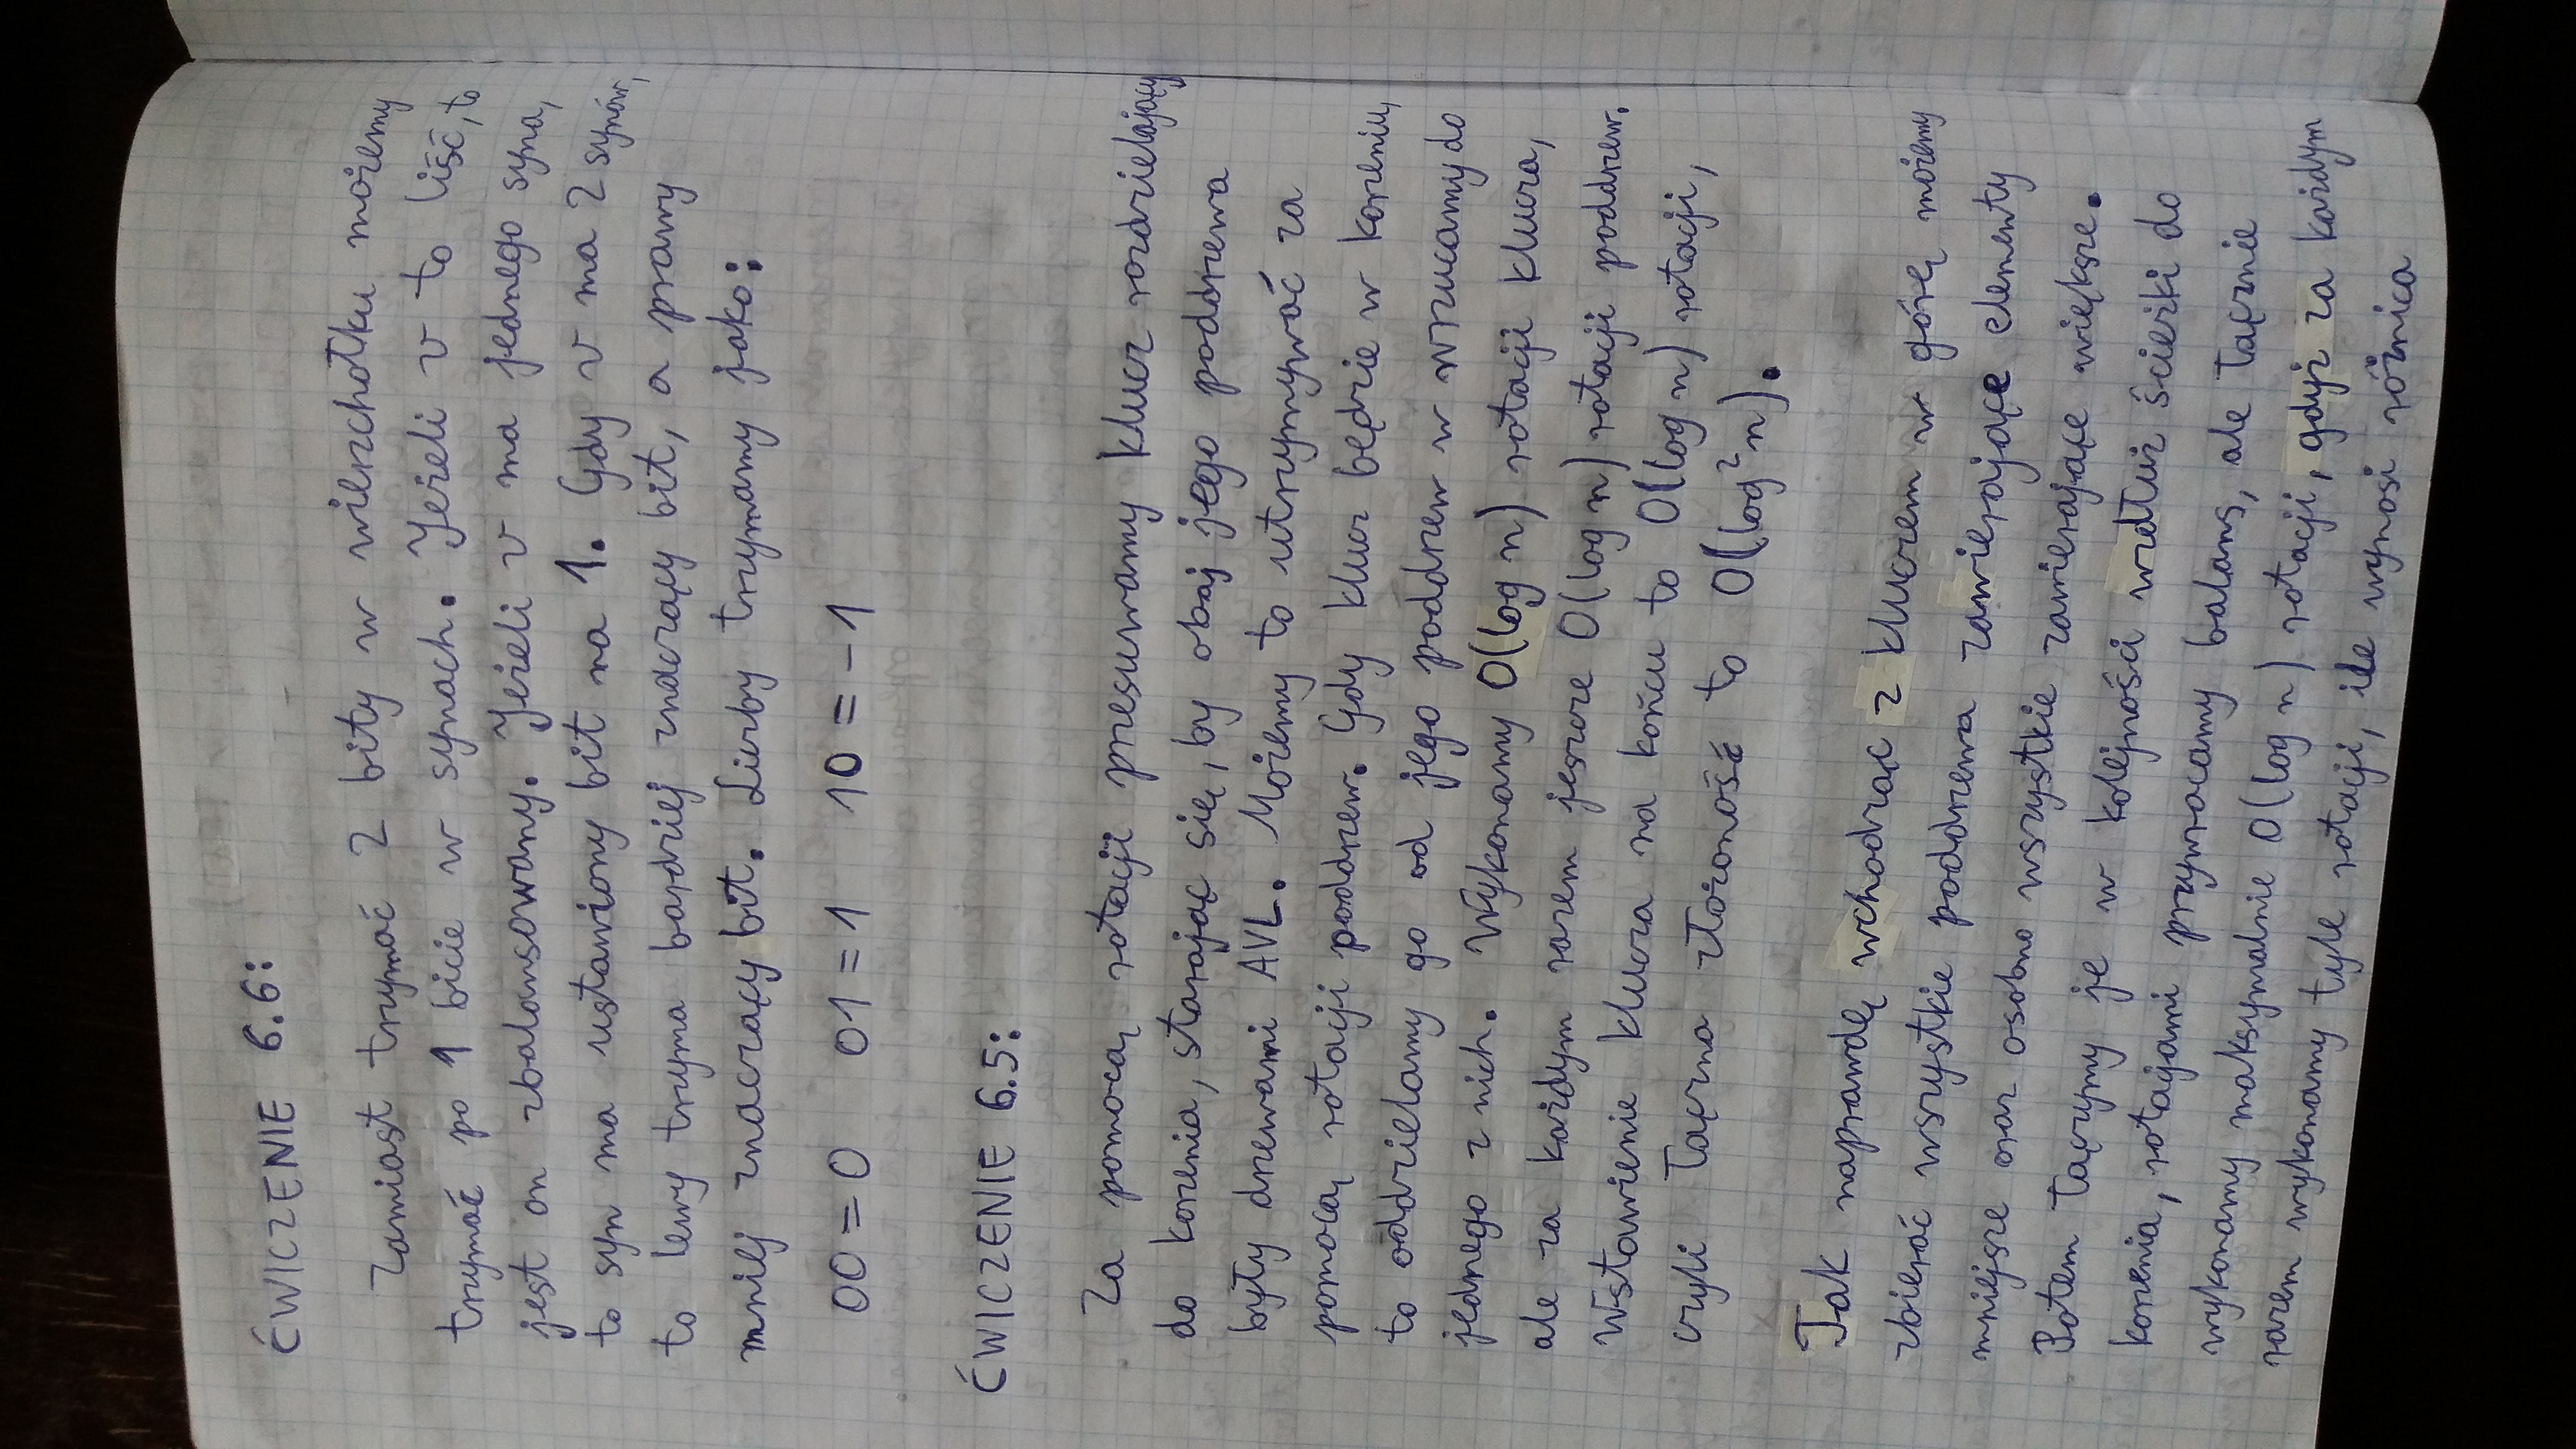 ĆWICZENIE 6.6:
Zamiast trzymać 2 bity w wierzchołku możemy
trzymać po 1 bicie w synach. Jeżeli v to liść, to
jest on zbalansowany. Jeżeli v ma jednego syna,
to syn ma ustawiony bit na 1. Gdy v ma 2 synów,
to lewy trzyma bardziej znaczący bit, a prawy
mniej znaczący bit. Liczby trzymamy jako:
00 = 0 01 = 1 10 = -1
ĆWICZENIE 6.5:
Za pomocą rotacji przesuwamy klucz rozdzielający
do korzenia, starając się, by obaj jego poddrzewa
były drzewami AVL. Możemy to utrzymywać za
pomocą rotacji poddrzew. Gdy klucz będzie w korzeniu,
to oddzielamy go od jego poddrzew w wrzucamy do
jednego z nich. Wykonamy O(log n) rotacji klucza,
ale za każdym razem jeszcze O(log n) rotacji poddrzew.
Wstawienie klucza na końcu to O(log n) rotacji,
czyli łączna złożoność to O(log²n).
Tak naprawdę wchodząc z kluczem w górę możemy
zbierać wszystkie poddrzewa zawierające elementy
mniejsze oraz osobno wszystkie zawierające większe.
Potem łączymy je w kolejności wzdłuż ścieżki do
korzenia, rotacjami przywracamy balans, ale łącznie
wykonamy maksymalnie O(log n) rotacji, gdyż za każdym
razem wykonamy tyle rotacji, ile wynosi różnica